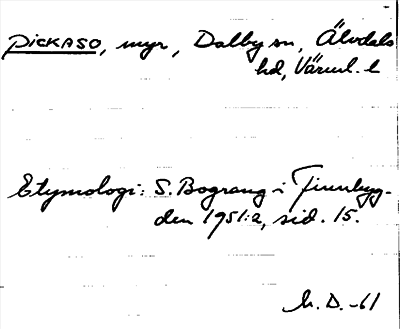 PICKASO, myr, Dalby sn, Älvdals
hd, Värml. l
Etymologi: S. Bograng i Finnbyg-
den 1951:2, sid. 15.
M. D. -61